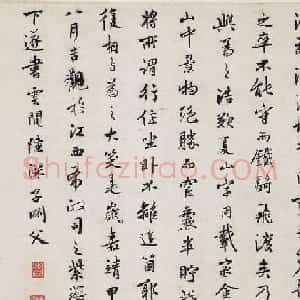 之卒不能守而鐵網飛渡矣乃
與為之浩歎夏山字用戴家金
山中景物絕勝而官壘半貯
將所謂行住坐臥不離這箇耶
復相與為之大笑是歲嘉靖甲
八月吉觀於江西布政司之紫薇
下遂書雲間陸深子淵父
Shufaziliao.com